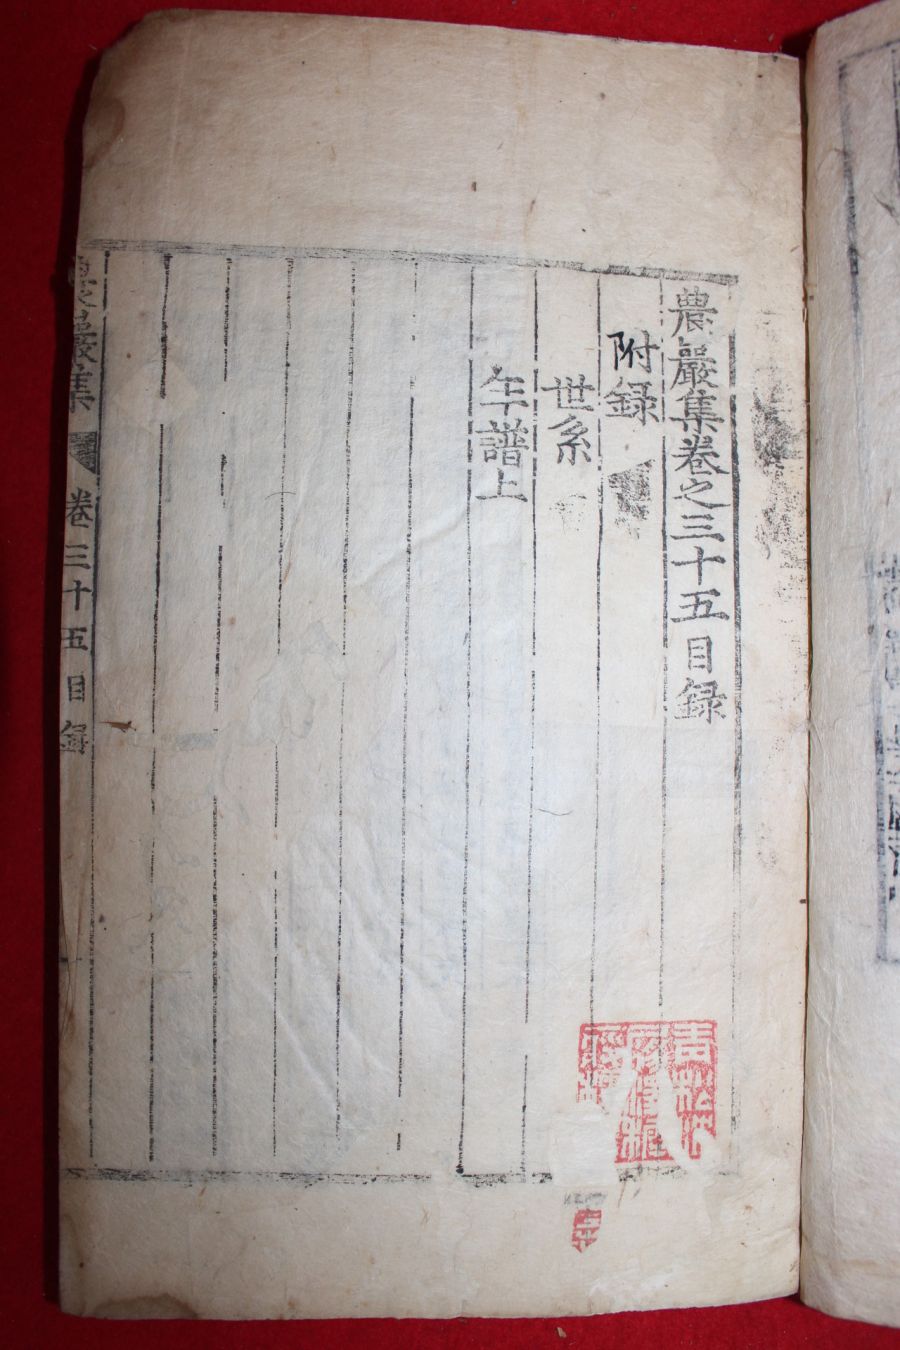 農巖集卷之三十五目録
附録
世系
年譜上
農巖集 卷三十五 目録